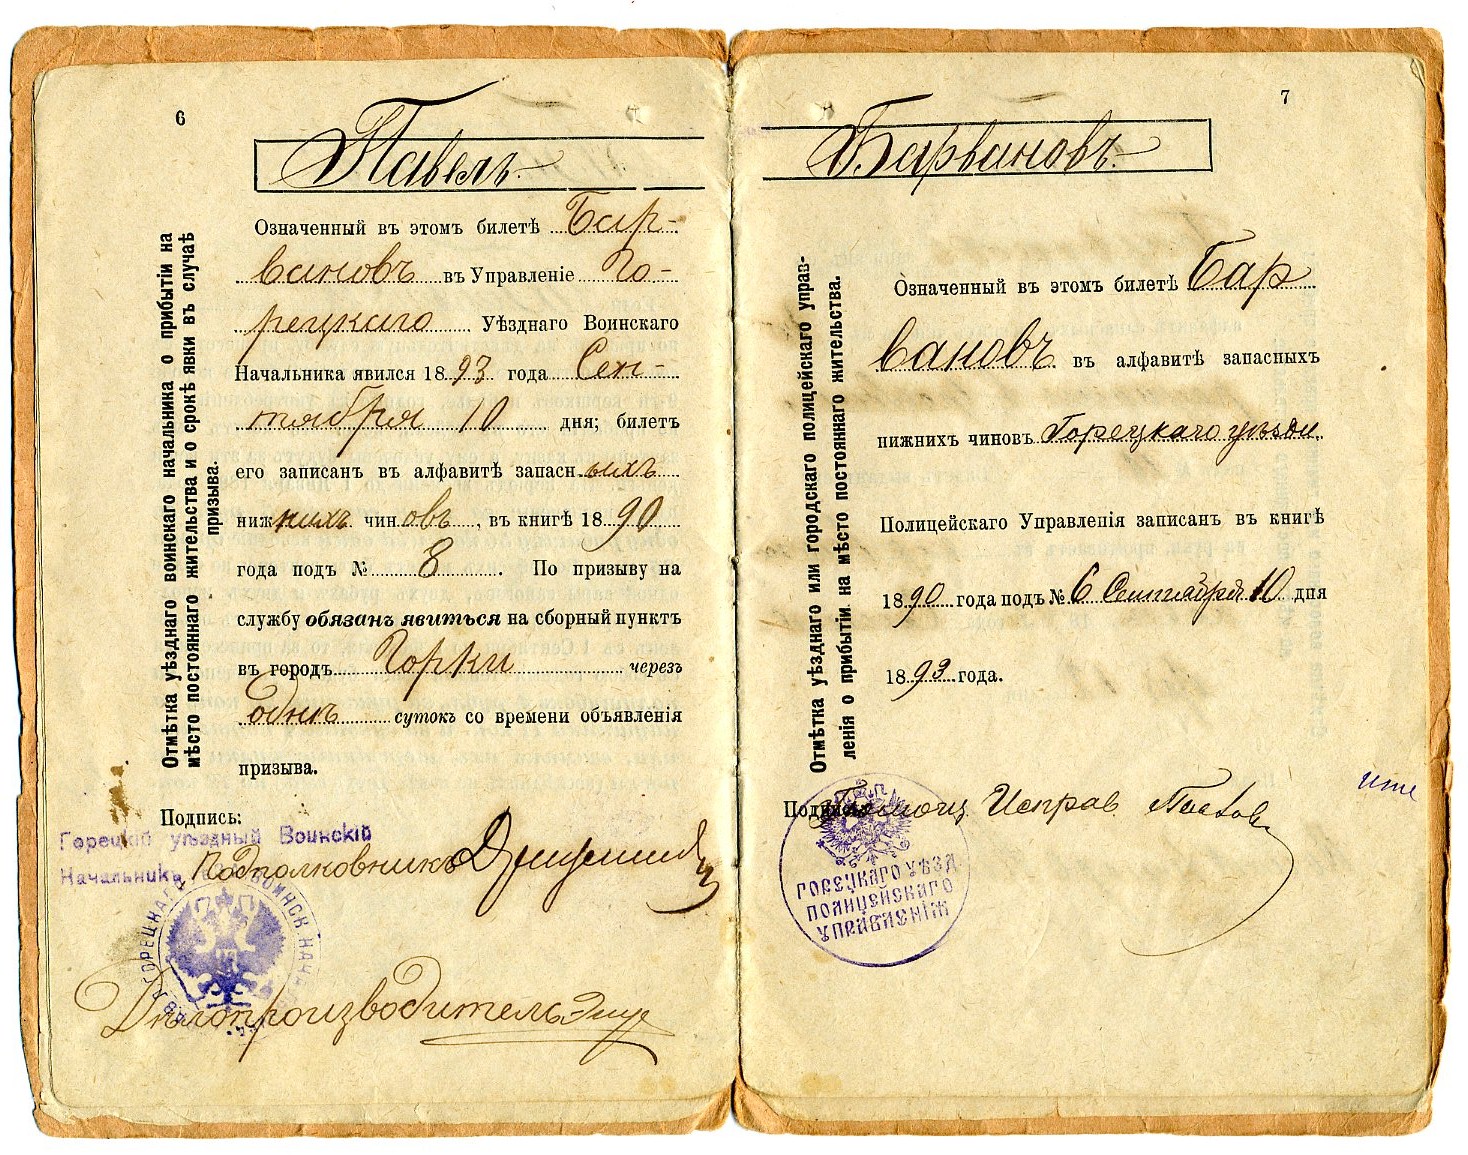 6
Павелъ
Означенный въ этомъ билетѣ Бар-
вановъ въ Управленіе Го-
рецкаго Уѣзднаго Воинскаго
Начальника явился 1893 года Сен-
тября 10 дня; билетъ
его записанъ въ алфавитѣ запасныхъ
нижнихъ чиновъ, въ книгѣ 1890
года подъ № 8. По призыву на
службу обязанъ явиться на сборный пунктъ
въ городъ Горки черезъ
однѣ сутокъ со времени объявленія
призыва.
Отмѣтка уѣзднаго воинскаго начальника о прибытіи на
мѣсто постояннаго жительства и о срокѣ явки въ случаѣ
призыва.
Подпись:
Горецкій уѣздный Воинскій
Начальникъ Подполковникъ
Дѣлопроизводитель
7
Барвановъ
Означенный въ этомъ билетѣ Бар
вановъ въ алфавитѣ запасныхъ
нижнихъ чиновъ Горецкаго уѣзда
Полицейскаго Управленія записанъ въ книгѣ
1890 года подъ № 6 Сентября 10 дня
1893 года.
Отмѣтка уѣзднаго или городского полицейскаго управ-
ленія о прибытіи на мѣсто постояннаго жительства.
Подпись: Помощ. Исправ.
ГОРЕЦКАГО УѢЗД.
ПОЛИЦЕЙСКАГО
УПРАВЛЕНІЯ